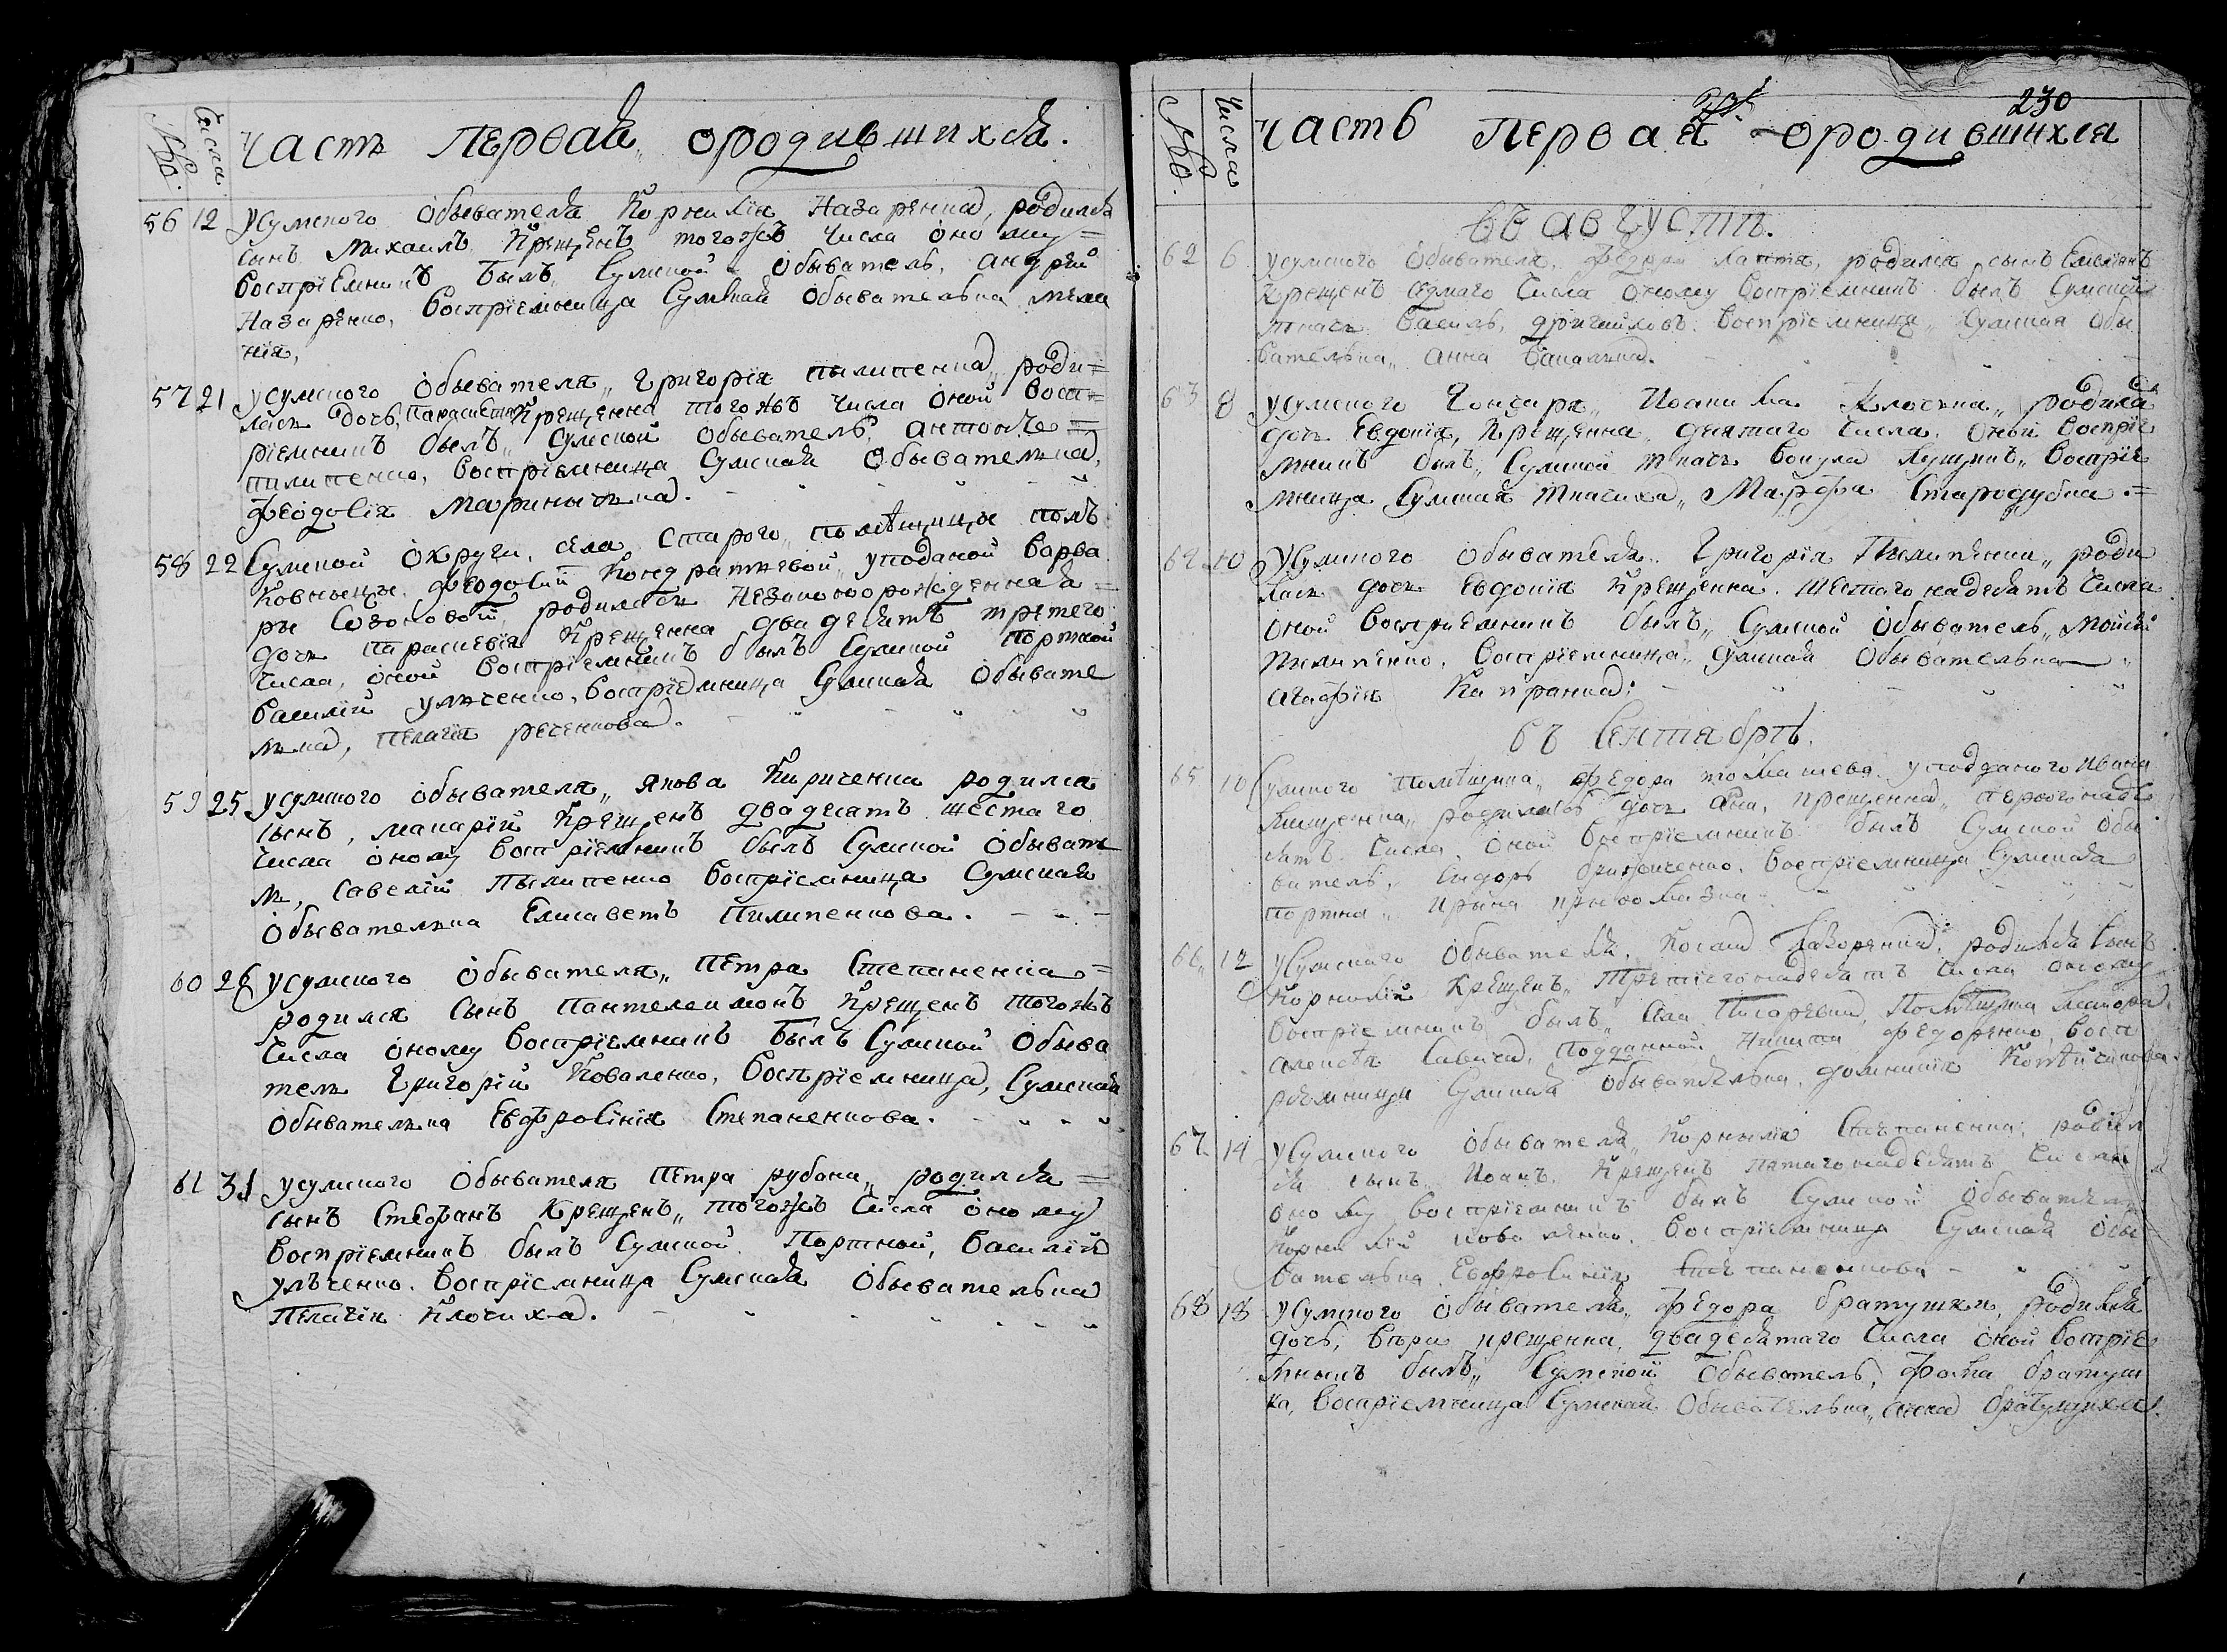 №
Числа
Часть Первая ородившихся.
56 12 Усумского Обывателя Корнилія Назаренка, родился
сынъ Михаилъ Крещенъ тогожъ Числа оному
воспріемникъ былъ Сумской Обыватель, Андрей
Назаренко, воспріемница Сумская Обывателька мела
нія,
57 21 усумского Обывателя Григорія пылипенка, роди=
лась дочь, Параскевія Крещенна тогожъ Числа Оной восп=
ріемникъ былъ Сумской Обыватель, Антонъ =
пилипенко, воспріемница Сумская Обывателька,
Феодосія
58 22 Сумской Округи, села Старого помѣщицы полъ
ковницы Феодосіи Кондратьевой уподаной Варва
ры родилась незаконорожденная
дочь параскевія Крещенна двадесятъ третего
числа, оной воспріемникъ былъ Сумской портной
Василій улѣченко, воспріемница Сумская Обывате
лька, Пелагія
59 25 усумского обывателя Якова Кириченка родился
сынъ, макарій Крещенъ двадесятъ шестаго
числа оному воспріемникъ былъ Сумской Обывате
ль, Савелій Пылипенко воспріемница Сумская
Обывателька Елисаветъ Пилипенкова.
60 26 усумского Обывателя Петра Степаненка =
родился Сынъ Пантелеимонъ Крещенъ тогожъ
числа оному воспріемникъ былъ Сумской Обыва
тель Григорій Коваленко, воспріемница, Сумская
Обывателька Евфросинія Степаненкова.
61 31 усумского Обывателя Петра рубана родился =
сынъ Стефанъ Крещенъ тогожъ Числа оному
воспріемникъ былъ Сумской Портной, Василій
улѣченко. воспріемница Сумская Обывателька
Пелагія Клочиха.
230
№
Числа
Часть Первая ородившихся
въ августѣ.
62 6 усумского Обывателя, Федора лаптя, родился сынъ Емеліянъ
Крещенъ седмаго Числа оному воспріемникъ былъ Сумской
ткачь Василь, воспріемница Сумская Обы
вателька Анна
63 8 усумского Гончаря, Иоаникія родилась
дочь Евдокія, Крещенна девятаго Числа, Оной воспріе
мникъ былъ Сумской ткачь воспріе
мница Сумская ткачиха Марфа Стародубка
64 10 Усумского Обывателя Григорія Пилипенка роди
лась дочь Евдокія Крещенна шестаго надесятъ Числа
оной воспріемникъ былъ Сумской Обыватель Моисей
Пилипенко, воспріемница Сумская Обывателька
Агафія
въ Сентябрѣ.
65 10 Сумского Помѣщика Федора уподданого Ивана
родилась дочь Ана, крещенна первогонаде
сятъ Числа оной воспріемникъ былъ Сумской Обы
ватель, Сидоръ воспріемница Сумская
портна Ирина
66 12 усумского Обывателя, родился сынъ
Корнилій Крещенъ третіегонадесятъ числа оному
воспріемникъ былъ села Писаревки, Помѣщика
алексѣя Савича, подданной Никита Федоренко, восп
ріемница Сумская Обывателька, домникія
67 14 усумского Обывателя Корнилія Степаненка, родил
ся сынъ, Иоанъ Крещенъ пятагонадесятъ Числа
оному воспріемникъ былъ Сумской Обыватель
Корнилій коваленко, воспріемница Сумская Обы
вателька Евфросинія Степаненкова
68 18 усумского Обывателя Федора братушки, родилась
дочь, вѣра крещенна, двадесятаго Числа оной воспріе
мникъ былъ Сумской Обыватель, Фома братуш
ка, воспріемница Сумская Обывателька Анна братущиха.